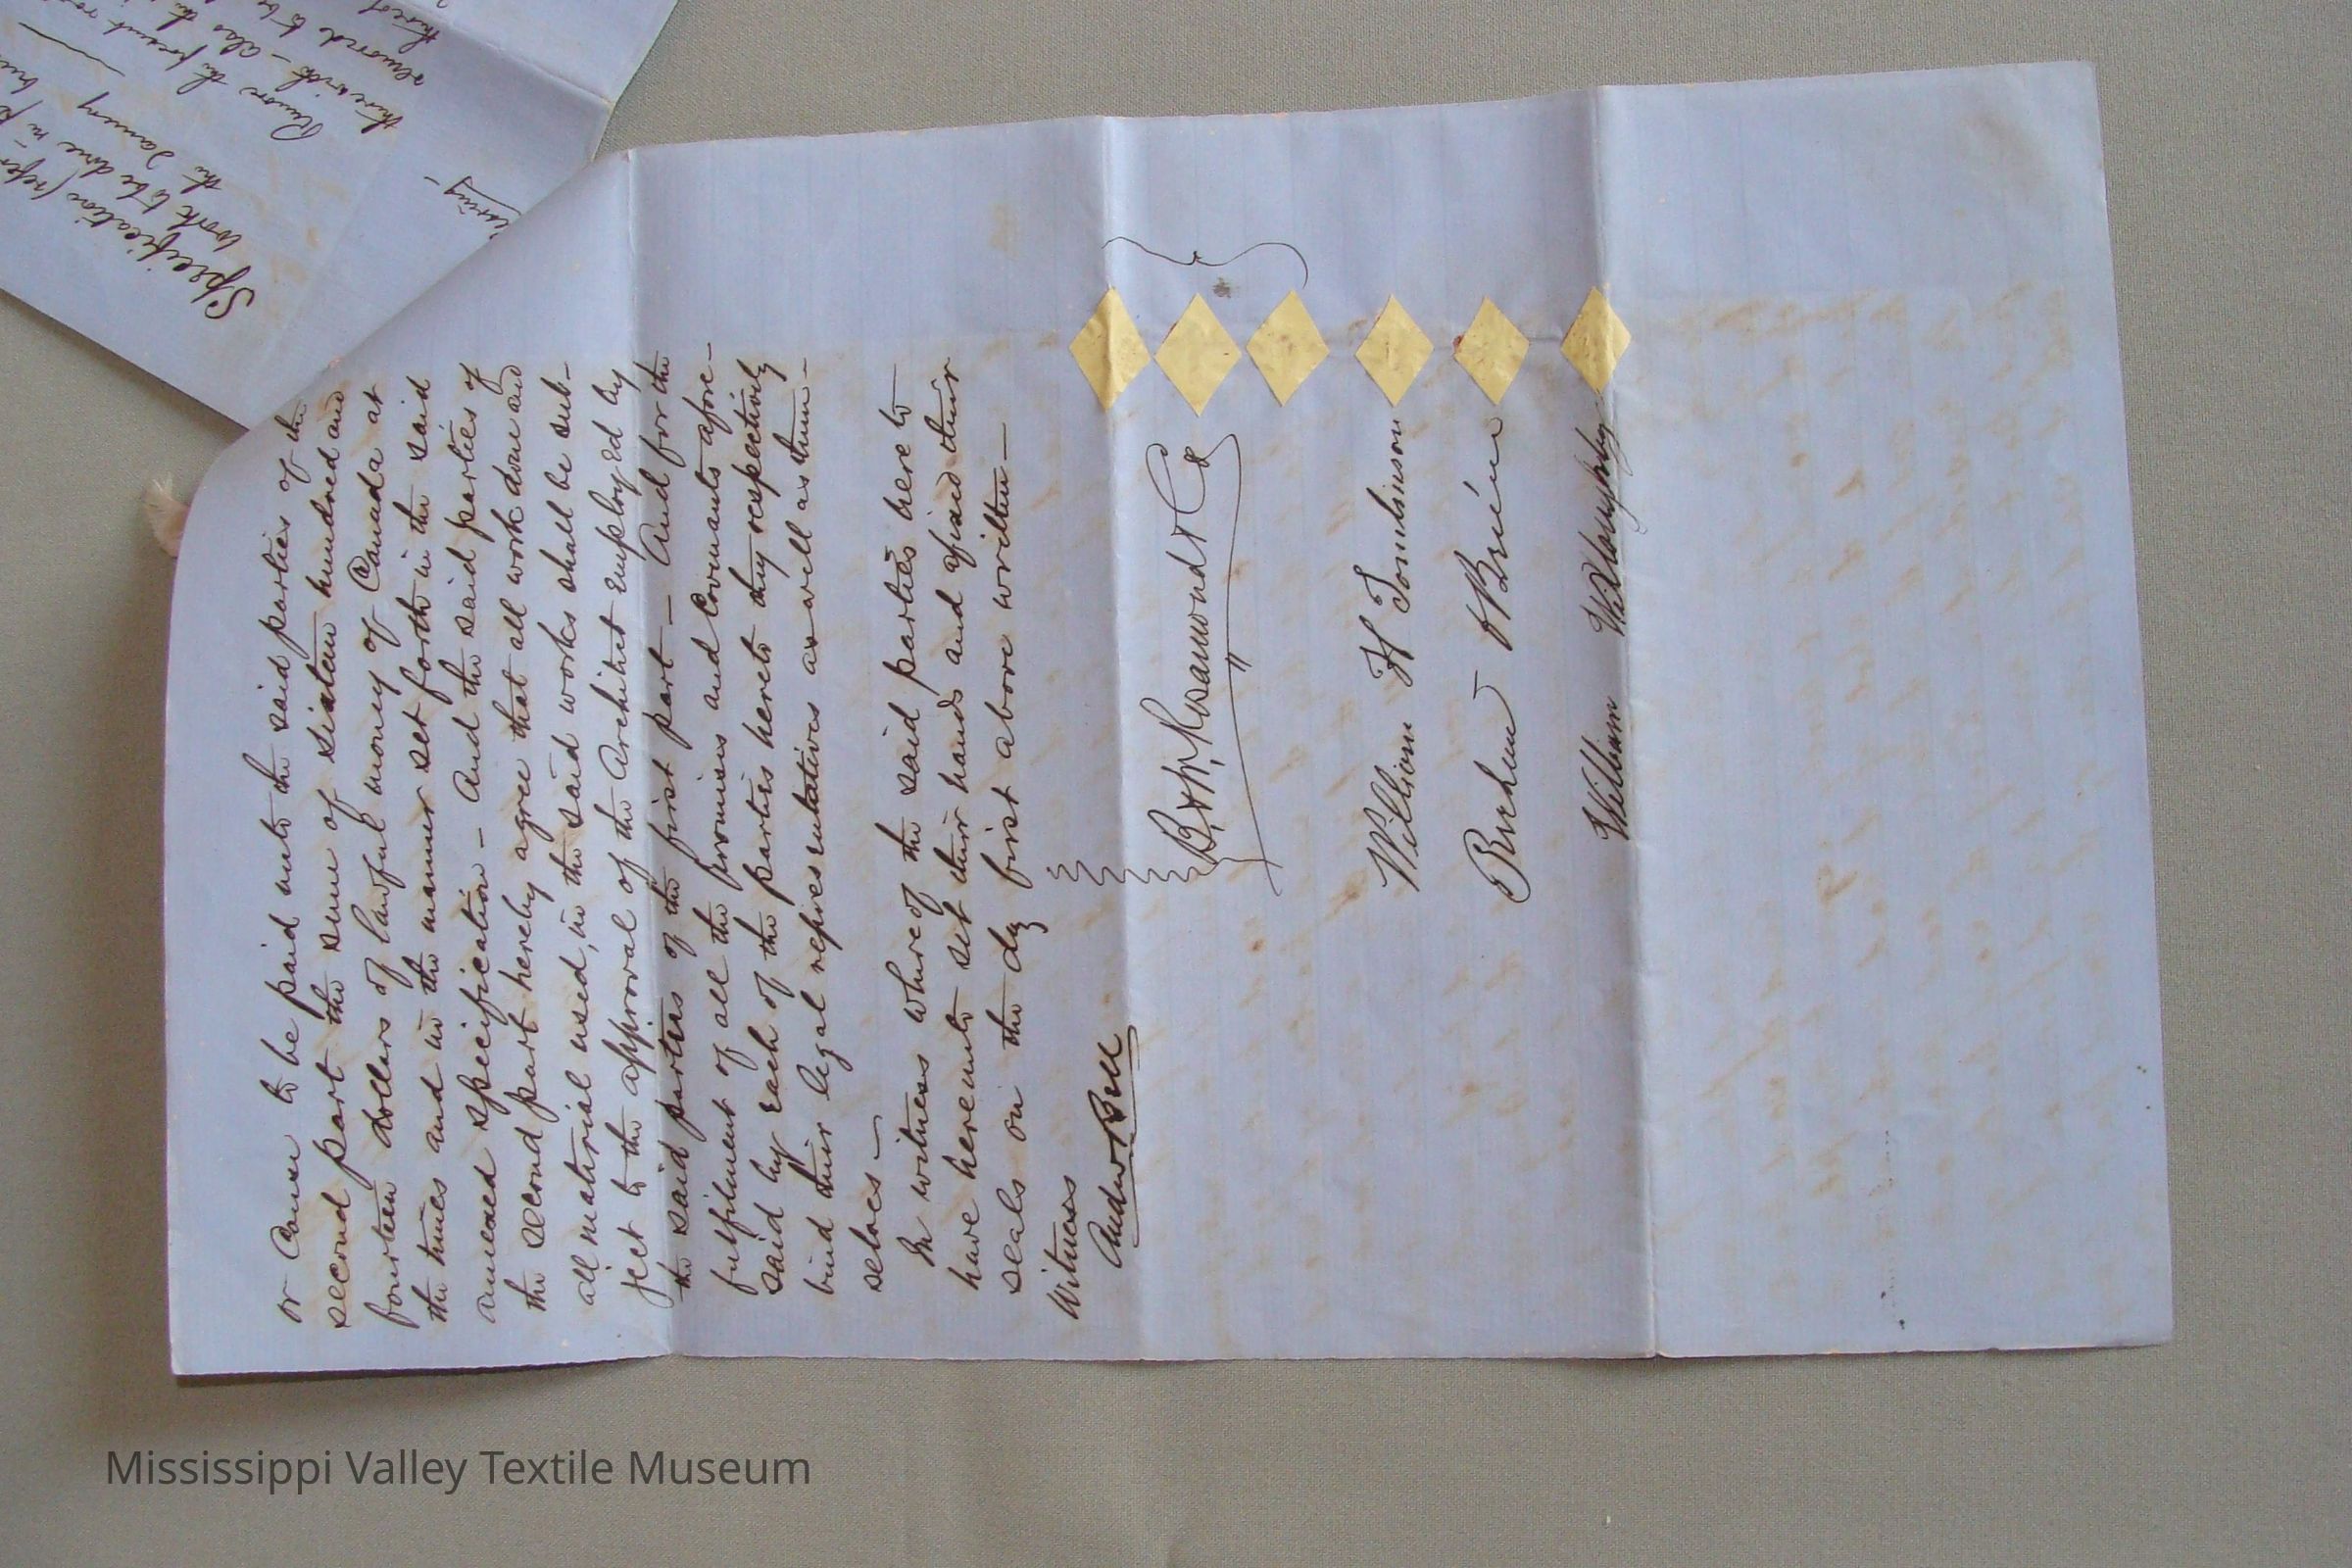 or Cause to be paid unto the said parties of the
second part the sum of sixteen hundred and
fourteen dollars of lawful money of Canada at
the times and in the manner set forth in the said
annexed specification – And the said parties of
the second part hereby agree that all work done and
all material used, in the said works shall be sub-
ject to the approval of the Architect employed by
the said parties of the first part – And for the
fulfilment of all the promises and Covenants afore-
said by each of the parties hereto they respectively
bind their legal representatives as well as them-
selves –
In witness whereof the said parties here to
have hereunto set their hands and afixed their
seals on the day first above written –
Witness
Andw Bell
B & W Rosamond & Co
William H Tomlinson
William Willoughby
Specification
work to be done in
the Tannery
Remove the present
therewith – also the
removed to be
thereof
Mississippi Valley Textile Museum